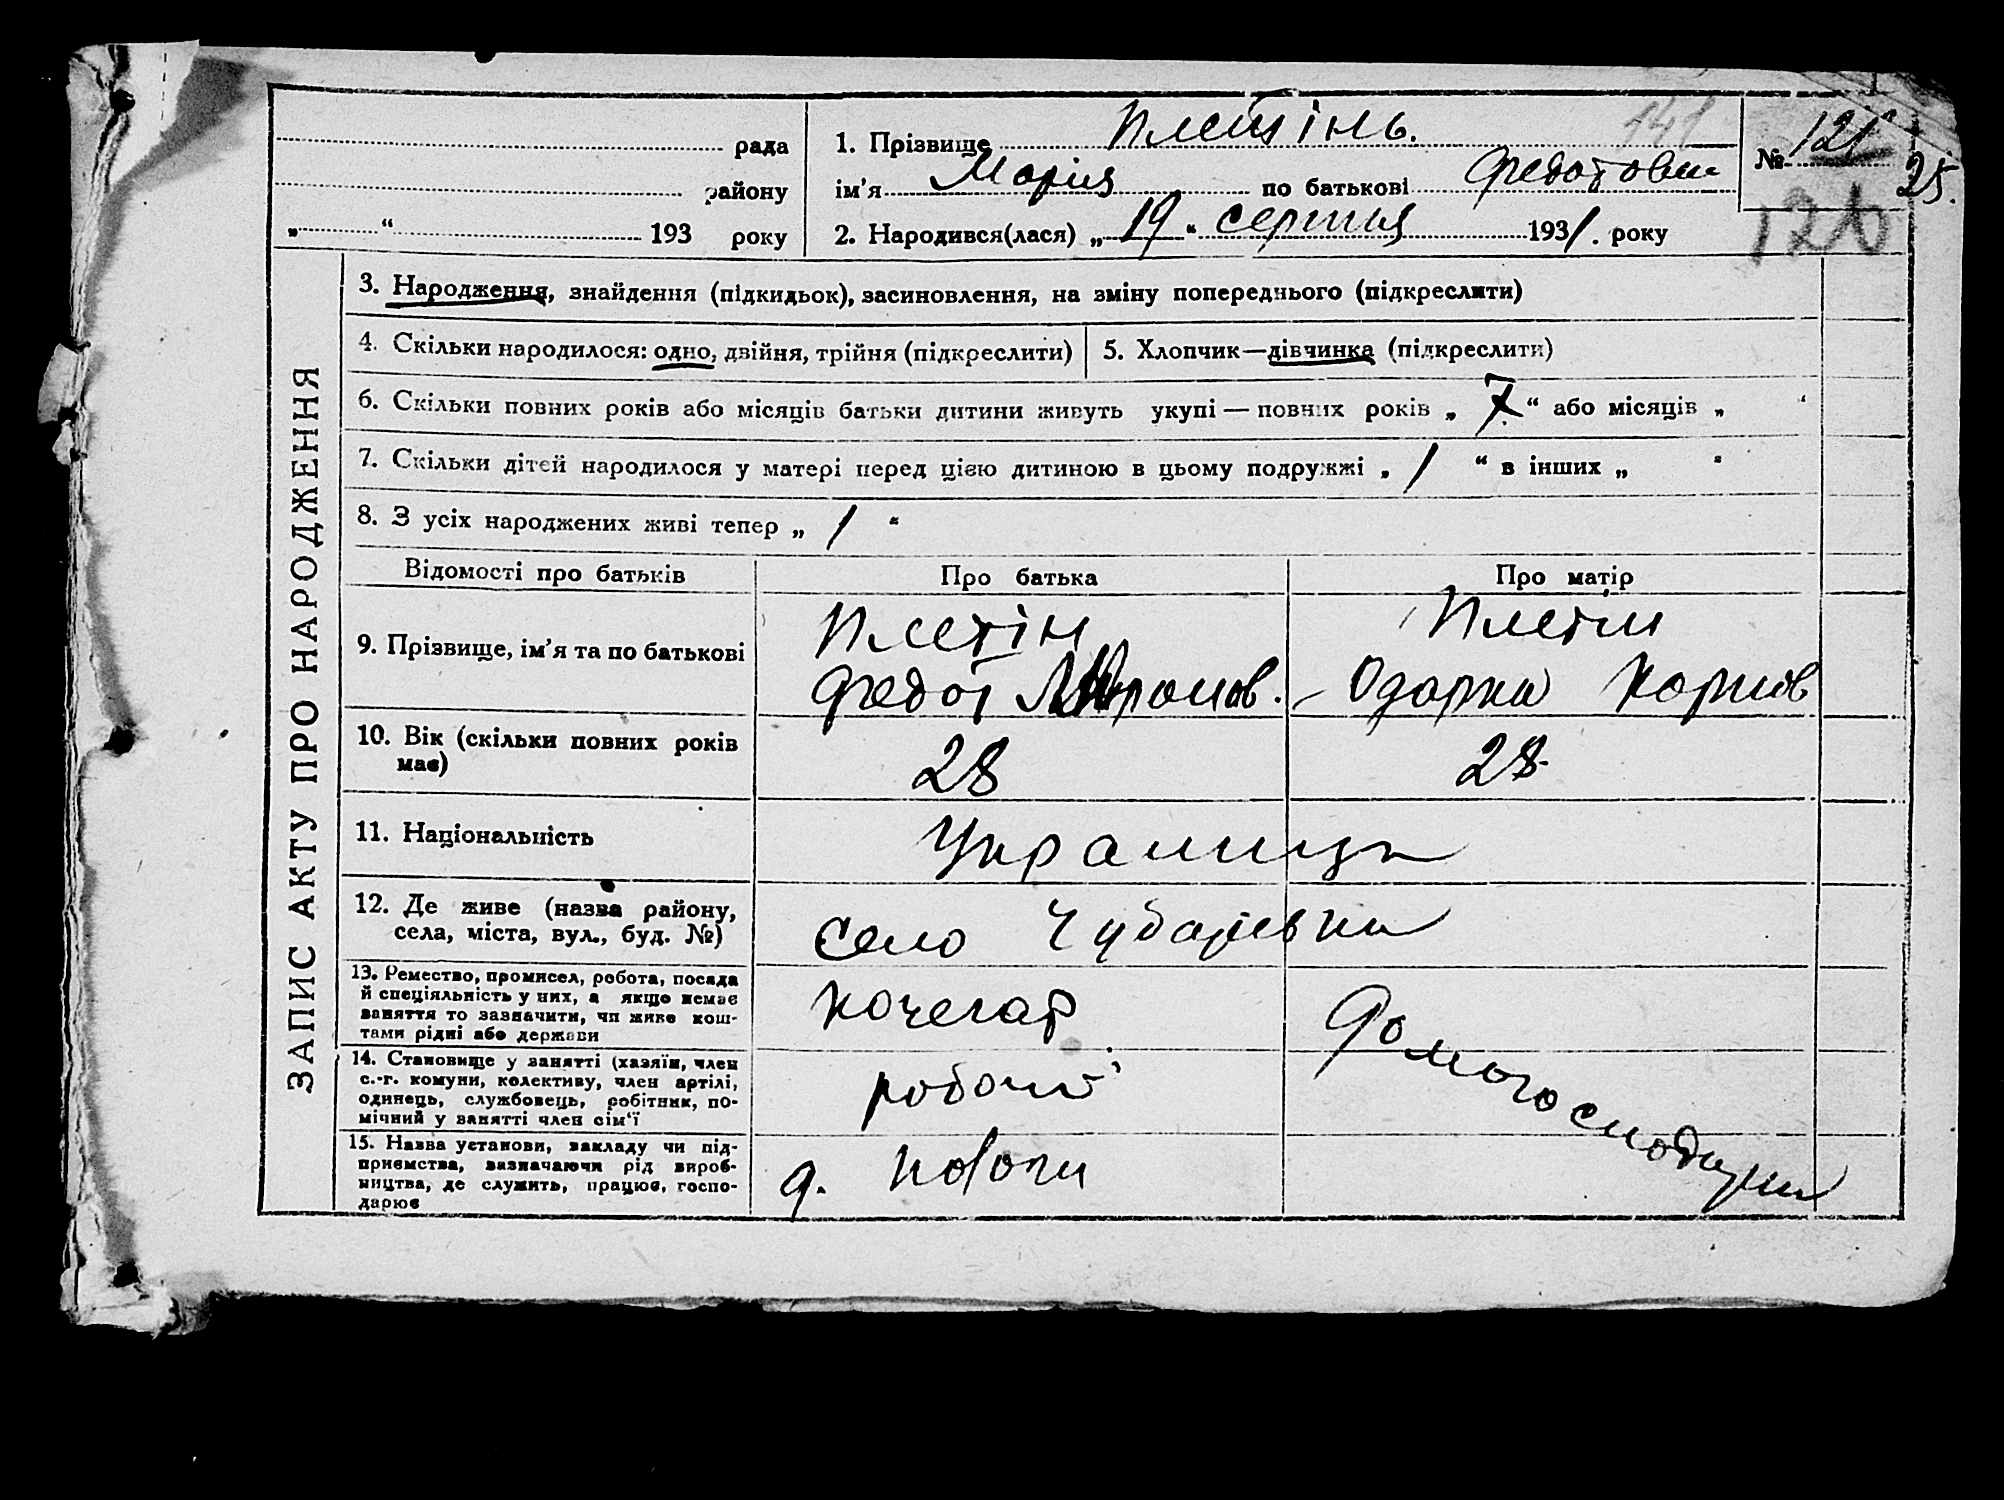 рада
району
„ “ 193 року
1. Прізвище Плетінь.
ім'я Марія по батькові Федотовна
2. Народився(лася) „ 19 “ серпня 1931. року
141
№ 121
25.
120
ЗАПИС АКТУ ПРО НАРОДЖЕННЯ
3. Народження, знайдення (підкидьок), засиновлення, на зміну попереднього (підкреслити)
4. Скільки народилося: одно, двійня, трійня (підкреслити)
5. Хлопчик—дівчинка (підкреслити)
6. Скільки повних років або місяців батьки дитини живуть укупі — повних років „ 7 “ або місяців „ “
7. Скільки дітей народилося у матері перед цією дитиною в цьому подружжі „ 1 “ в інших „ “
8. З усіх народжених живі тепер „ 1 “
Відомості про батьків Про батька Про матір
9. Прізвище, ім'я та по батькові
Плетін
Федот Миронов.
Плетін
Одарка Карпов
10. Вік (скільки повних років
має)
28
28
11. Національність
Українці
12. Де живе (назва району,
села, міста, вул., буд. №)
село Чубарівка
13. Ремество, промисел, робота, посада
й спеціяльність у них, а якщо немає
заняття то зазначити, чи живе кош-
тами рідні або держави
кочегар
домогосподарка
14. Становище у занятті (хазяїн, член
с.-г. комуни, колективу, член артілі,
одинець, службовець, робітник, по-
мічний у занятті член сім'ї
робочий
15. Назва установи, закладу чи під-
приємства, зазначаючи рід вироб-
ництва, де служить, працює, госпо-
дарює